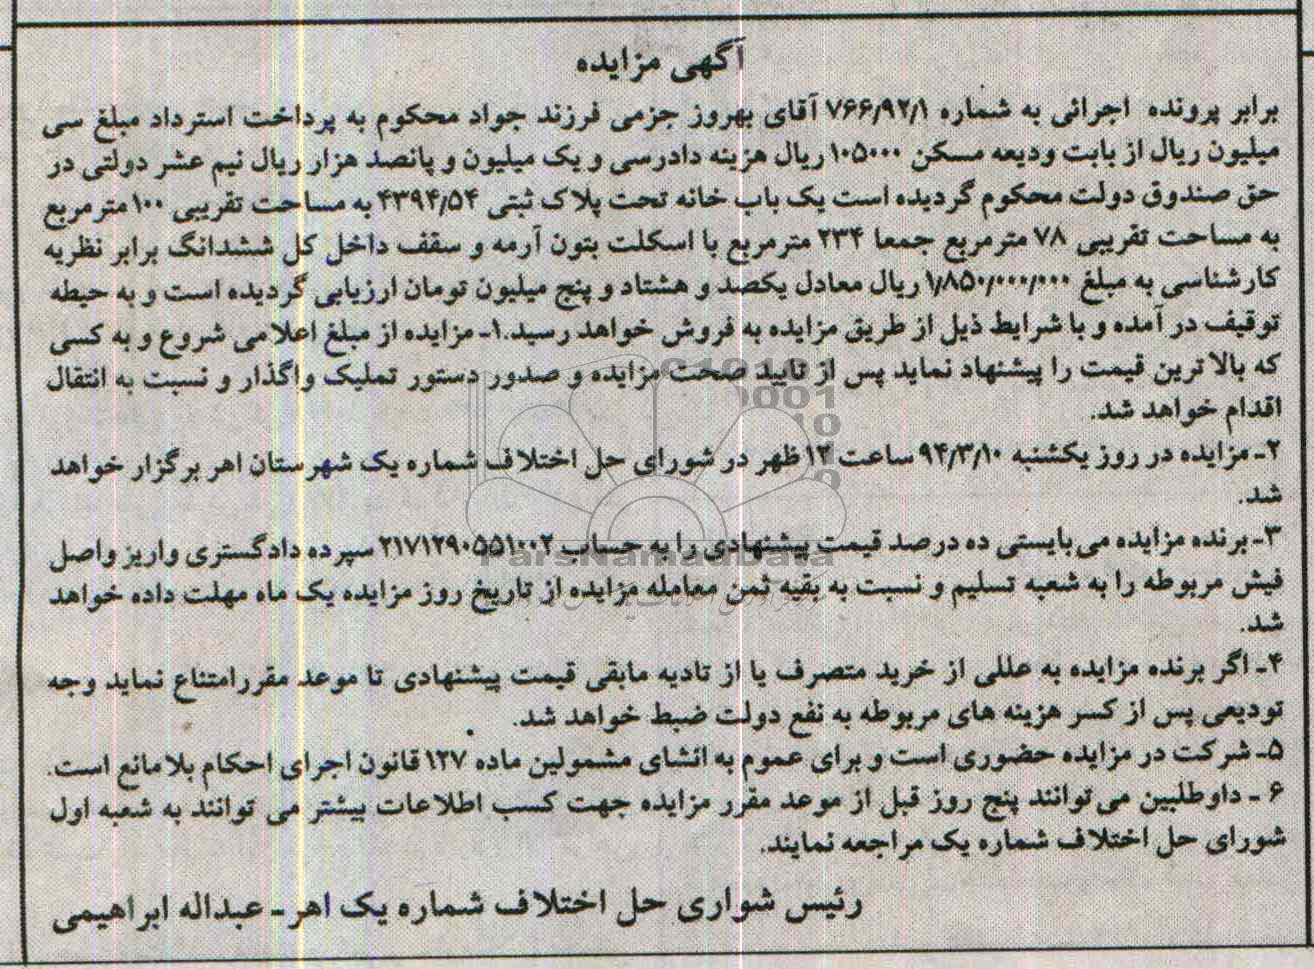 آگهی مزایده
برابر پرونده اجرائی به شماره ۷۶۶/۹۲/۱ آقای بهروز جزمی فرزند جواد محکوم به پرداخت استرداد مبلغ سی
میلیون ریال از بابت ودیعه مسکن ۱۰۵۰۰۰ ریال هزینه دادرسی و یک میلیون و پانصد هزار ریال نیم عشر دولتی در
حق صندوق دولت محکوم گردیده است یک باب خانه تحت پلاک ثبتی ۴۳۹۴/۵۴ به مساحت تقریبی ۱۰۰ مترمربع
به مساحت تقریبی ۷۸ مترمربع جمعا ۲۳۴ مترمربع با اسکلت بتون آرمه و سقف داخل کل ششدانگ برابر نظریه
کارشناسی به مبلغ ۱/۸۵۰/۰۰۰/۰۰۰ ریال معادل یکصد و هشتاد و پنج میلیون تومان ارزیابی گردیده است و به حیطه
توقیف در آمده و با شرایط ذیل از طریق مزایده به فروش خواهد رسید.۱ـ مزایده از مبلغ اعلامی شروع و به کسی
که بالا ترین قیمت را پیشنهاد نماید پس از تایید صحت مزایده و صدور دستور تملیک واگذار و نسبت به انتقال
اقدام خواهد شد.
۲ـ مزایده در روز یکشنبه ۹۴/۳/۱۰ ساعت ۱۲ ظهر در شورای حل اختلاف شماره یک شهرستان اهر برگزار خواهد
شد.
۳ـ برنده مزایده می‌بایستی ده درصد قیمت پیشنهادی را به حساب ۲۱۷۱۲۹۰۵۵۱۰۰۲ سپرده دادگستری واریز واصل
فیش مربوطه را به شعبه تسلیم و نسبت به بقیه ثمن معامله مزایده از تاریخ روز مزایده یک ماه مهلت داده خواهد
شد.
۴ـ اگر برنده مزایده به عللی از خرید متصرف یا از تادیه مابقی قیمت پیشنهادی تا موعد مقررامتناع نماید وجه
تودیعی پس از کسر هزینه های مربوطه به نفع دولت ضبط خواهد شد.
۵ـ شرکت در مزایده حضوری است و برای عموم به انشای مشمولین ماده ۱۲۷ قانون اجرای احکام بلامانع است.
۶ ـ داوطلبین می‌توانند پنج روز قبل از موعد مقرر مزایده جهت کسب اطلاعات بیشتر می توانند به شعبه اول
شورای حل اختلاف شماره یک مراجعه نمایند.
رئیس شواری حل اختلاف شماره یک اهر ـ عبداله ابراهیمی
ParsNamadData